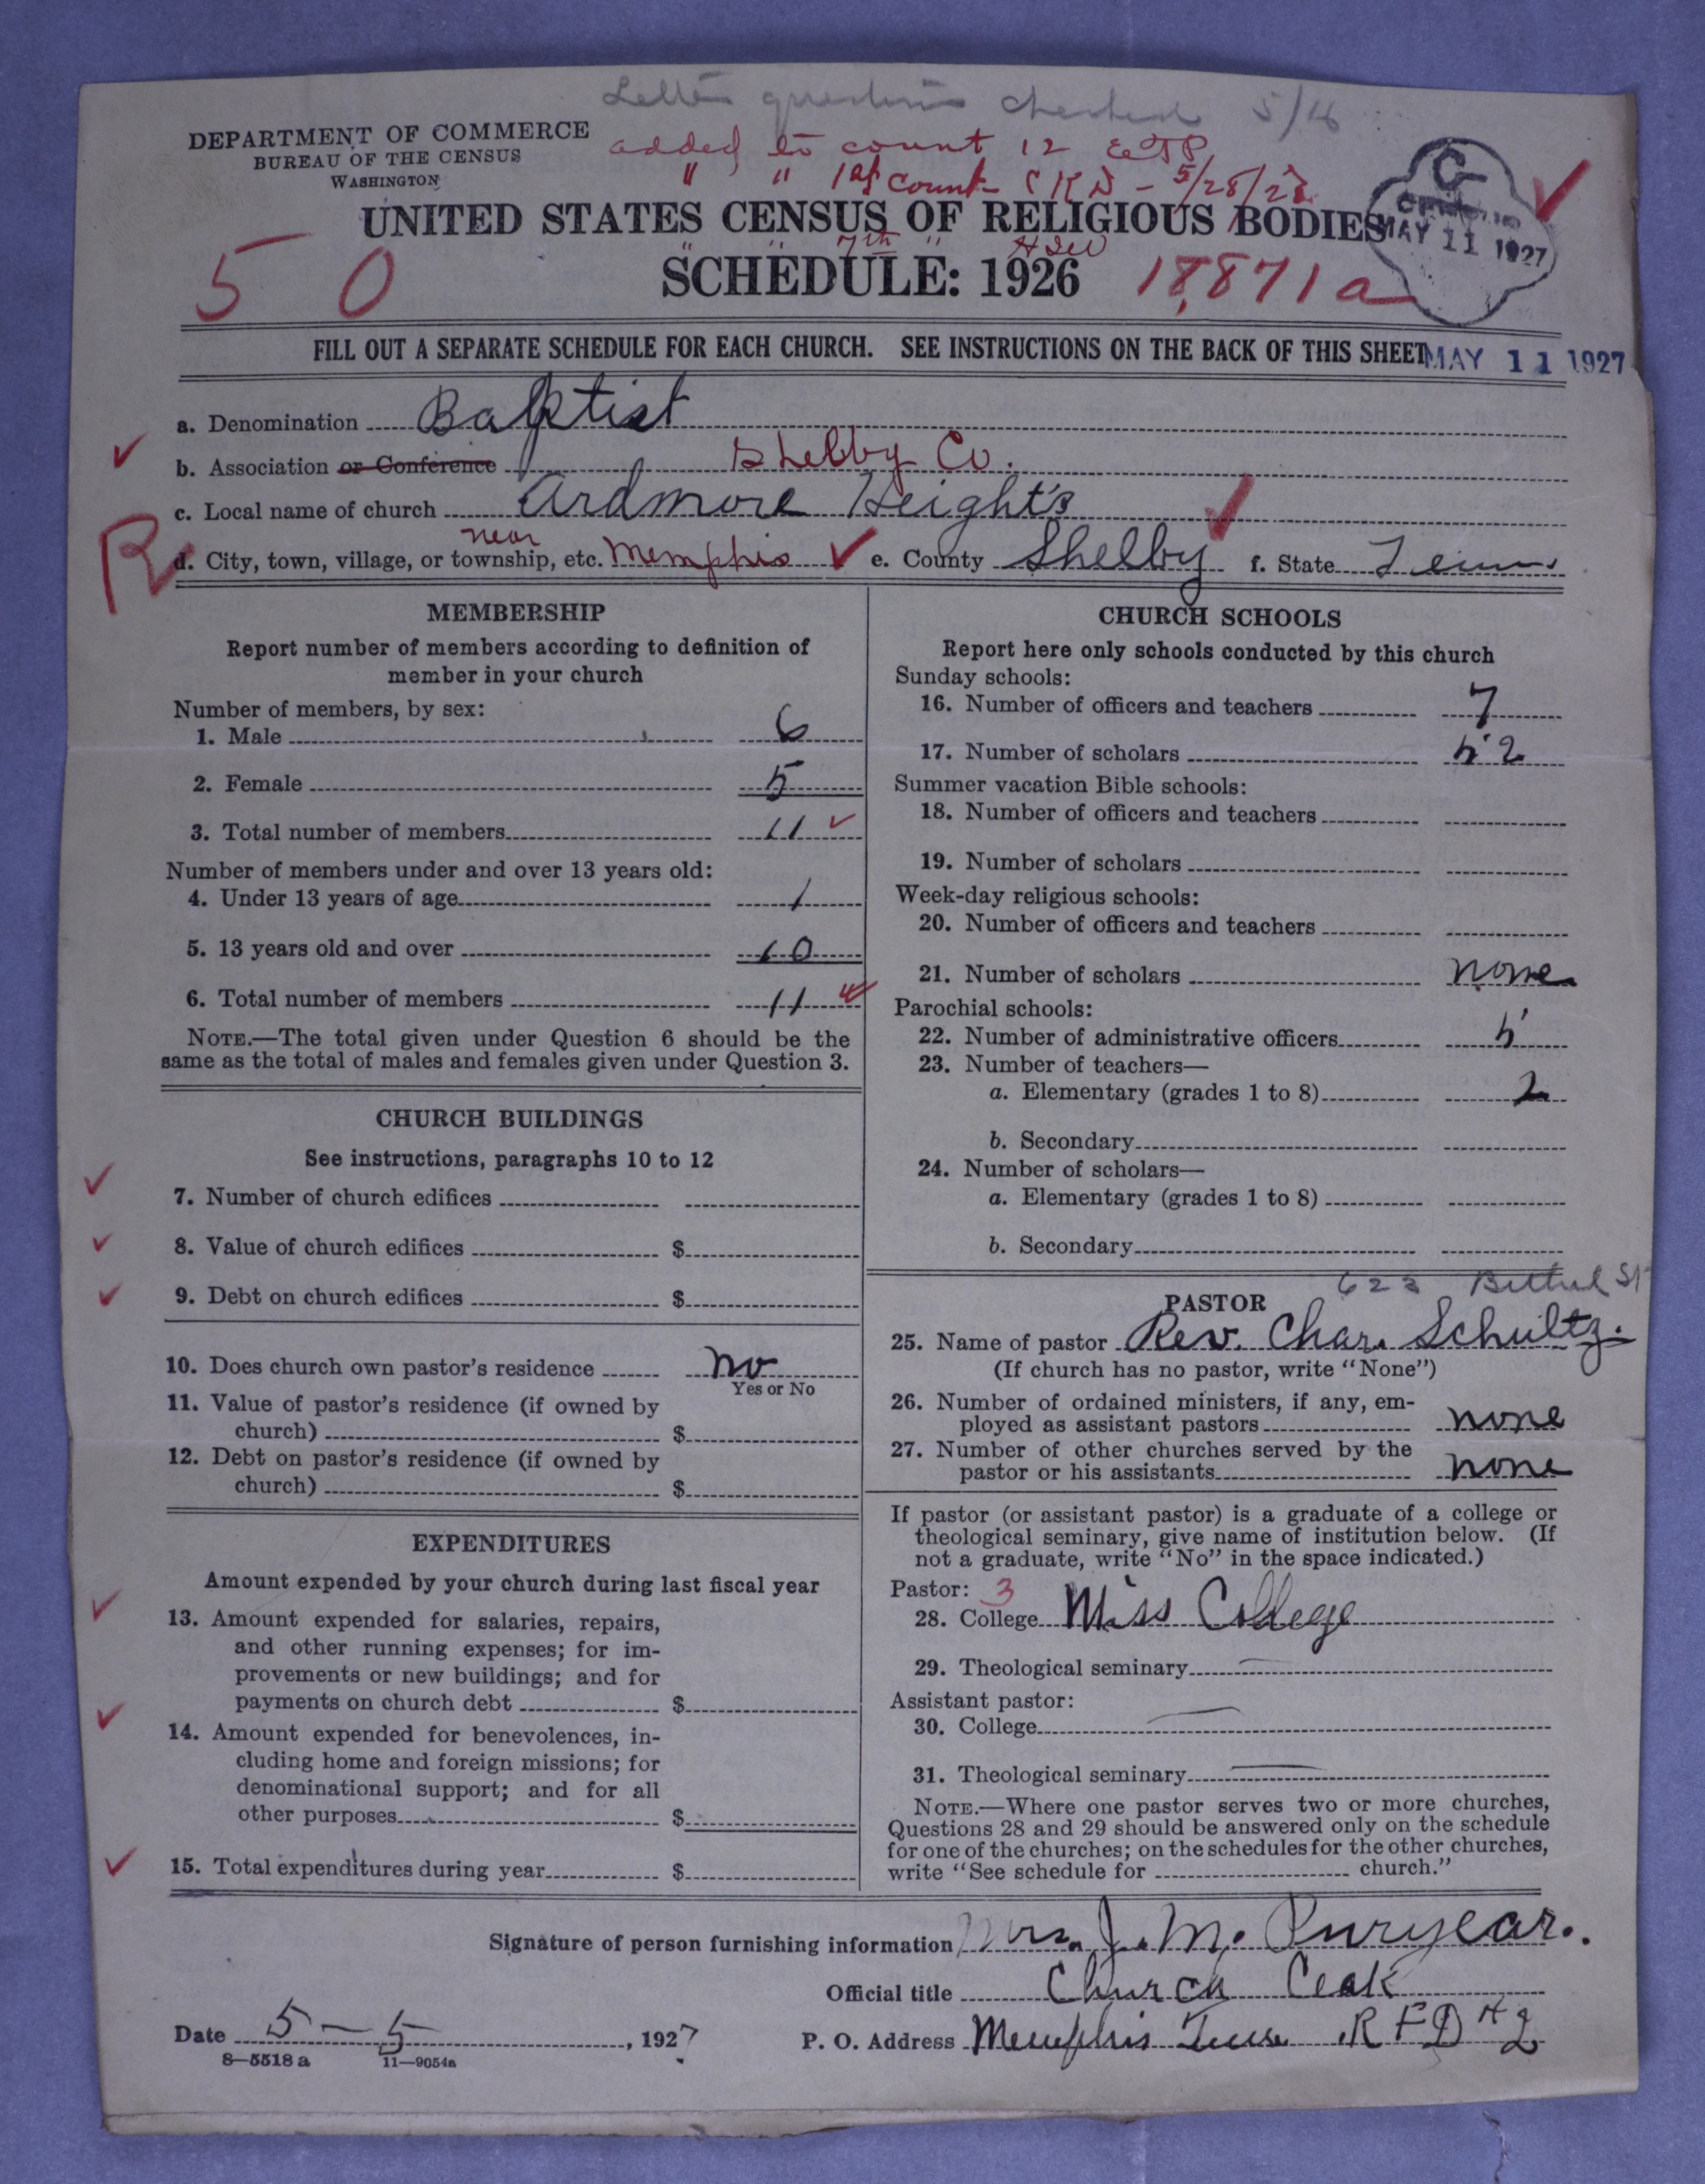 Letter questions checked 5/16
DEPARTMENT OF COMMERCE
BUREAU OF THE CENSUS
WASHINGTON
added to count 12 EJP
" " 1st count CKN - 5/28/28
UNITED STATES CENSUS OF RELIGIOUS BODIES
" " 7th "
SCHEDULE: 1926
50
18,871a
MAY 11 1927
FILL OUT A SEPARATE SCHEDULE FOR EACH CHURCH. SEE INSTRUCTIONS ON THE BACK OF THIS SHEET
MAY 11 1927
a. Denomination Baptist
b. Association or Conference Shelby Co.
c. Local name of church Ardmore Height's
R
d. City, town, village, or township, etc. near Memphis e. County Shelby f. State Tenn
MEMBERSHIP
Report number of members according to definition of
member in your church
Number of members, by sex:
1. Male 6
2. Female 5
3. Total number of members 11
Number of members under and over 13 years old:
4. Under 13 years of age 1
5. 13 years old and over 10
6. Total number of members 11
NOTE.—The total given under Question 6 should be the
same as the total of males and females given under Question 3.
CHURCH BUILDINGS
See instructions, paragraphs 10 to 12
7. Number of church edifices
8. Value of church edifices $
9. Debt on church edifices $
10. Does church own pastor's residence no
Yes or No
11. Value of pastor's residence (if owned by
church) $
12. Debt on pastor's residence (if owned by
church) $
EXPENDITURES
Amount expended by your church during last fiscal year
13. Amount expended for salaries, repairs,
and other running expenses; for im-
provements or new buildings; and for
payments on church debt $
14. Amount expended for benevolences, in-
cluding home and foreign missions; for
denominational support; and for all
other purposes $
15. Total expenditures during year $
CHURCH SCHOOLS
Report here only schools conducted by this church
Sunday schools:
16. Number of officers and teachers 7
17. Number of scholars 52
Summer vacation Bible schools:
18. Number of officers and teachers
19. Number of scholars
Week-day religious schools:
20. Number of officers and teachers
21. Number of scholars none
Parochial schools:
22. Number of administrative officers 5
23. Number of teachers—
a. Elementary (grades 1 to 8) 2
b. Secondary
24. Number of scholars—
a. Elementary (grades 1 to 8)
b. Secondary
623 Bethel St
PASTOR
25. Name of pastor Rev. Chas. Schultz.
(If church has no pastor, write "None")
26. Number of ordained ministers, if any, em-
ployed as assistant pastors none
27. Number of other churches served by the
pastor or his assistants none
If pastor (or assistant pastor) is a graduate of a college or
theological seminary, give name of institution below. (If
not a graduate, write "No" in the space indicated.)
Pastor: 3
28. College Miss College
29. Theological seminary
Assistant pastor:
30. College
31. Theological seminary
NOTE.—Where one pastor serves two or more churches,
Questions 28 and 29 should be answered only on the schedule
for one of the churches; on the schedules for the other churches,
write "See schedule for church."
Signature of person furnishing information Mrs. J. M. Puryear.
Official title Church Cleak
Date 5-5, 1927 P. O. Address Memphis Tenn R F D # 2
8—5518a 11—9054a